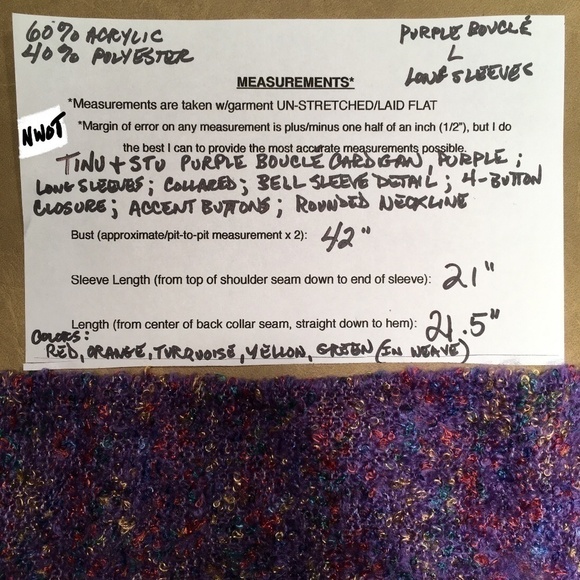 60% ACRYLIC
40% POLYESTER
PURPLE BOUCLÉ
L
LONG SLEEVES
MEASUREMENTS*
*Measurements are taken w/garment UN-STRETCHED/LAID FLAT
NWOT
*Margin of error on any measurement is plus/minus one half of an inch (1/2"), but I do
the best I can to provide the most accurate measurements possible.
TINU + STU PURPLE BOUCLE CARDIGAN, PURPLE;
LONG SLEEVES; COLLARED; BELL SLEEVE DETAIL; 4-BUTTON
CLOSURE; ACCENT BUTTONS; ROUNDED NECKLINE
Bust (approximate/pit-to-pit measurement x 2): 42"
Sleeve Length (from top of shoulder seam down to end of sleeve): 21"
Length (from center of back collar seam, straight down to hem): 21.5"
COLORS:
RED, ORANGE, TURQUOISE, YELLOW, GREEN (IN WEAVE)